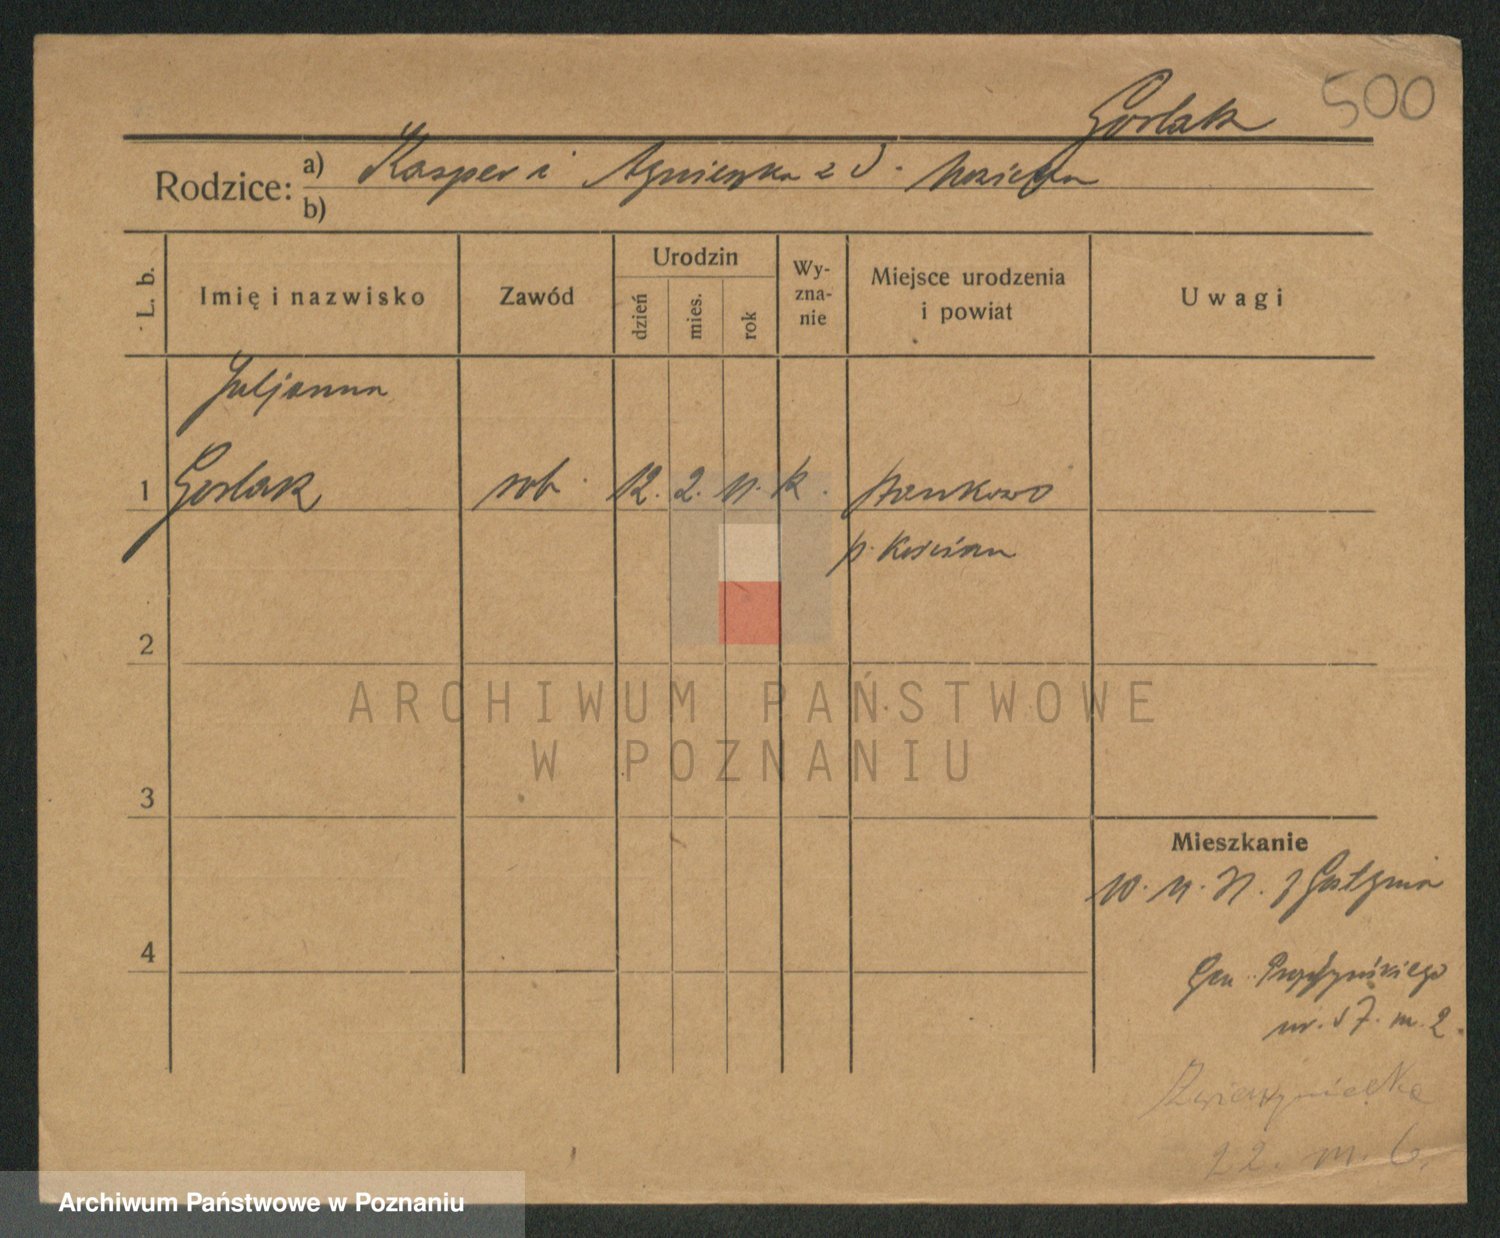 500
Gorlak
Rodzice: a) Kasper i Agnieszka z d.
b)
L. b. Imię i nazwisko Zawód Urodzin dzień mies. rok Wy-zna-nie Miejsce urodzenia i powiat Uwagi
Juljanna
1 Gorlak rob. 12. 2. 11. k.
p. Kościan
2
ARCHIWUM PAŃSTWOWE
W POZNANIU
3
Mieszkanie
10. 11. 31. z Gostynia
4
Gen. Prądzyńskiego
nr. 57. m. 2.
Zwierzyniecka
22. m. 6.
Archiwum Państwowe w Poznaniu